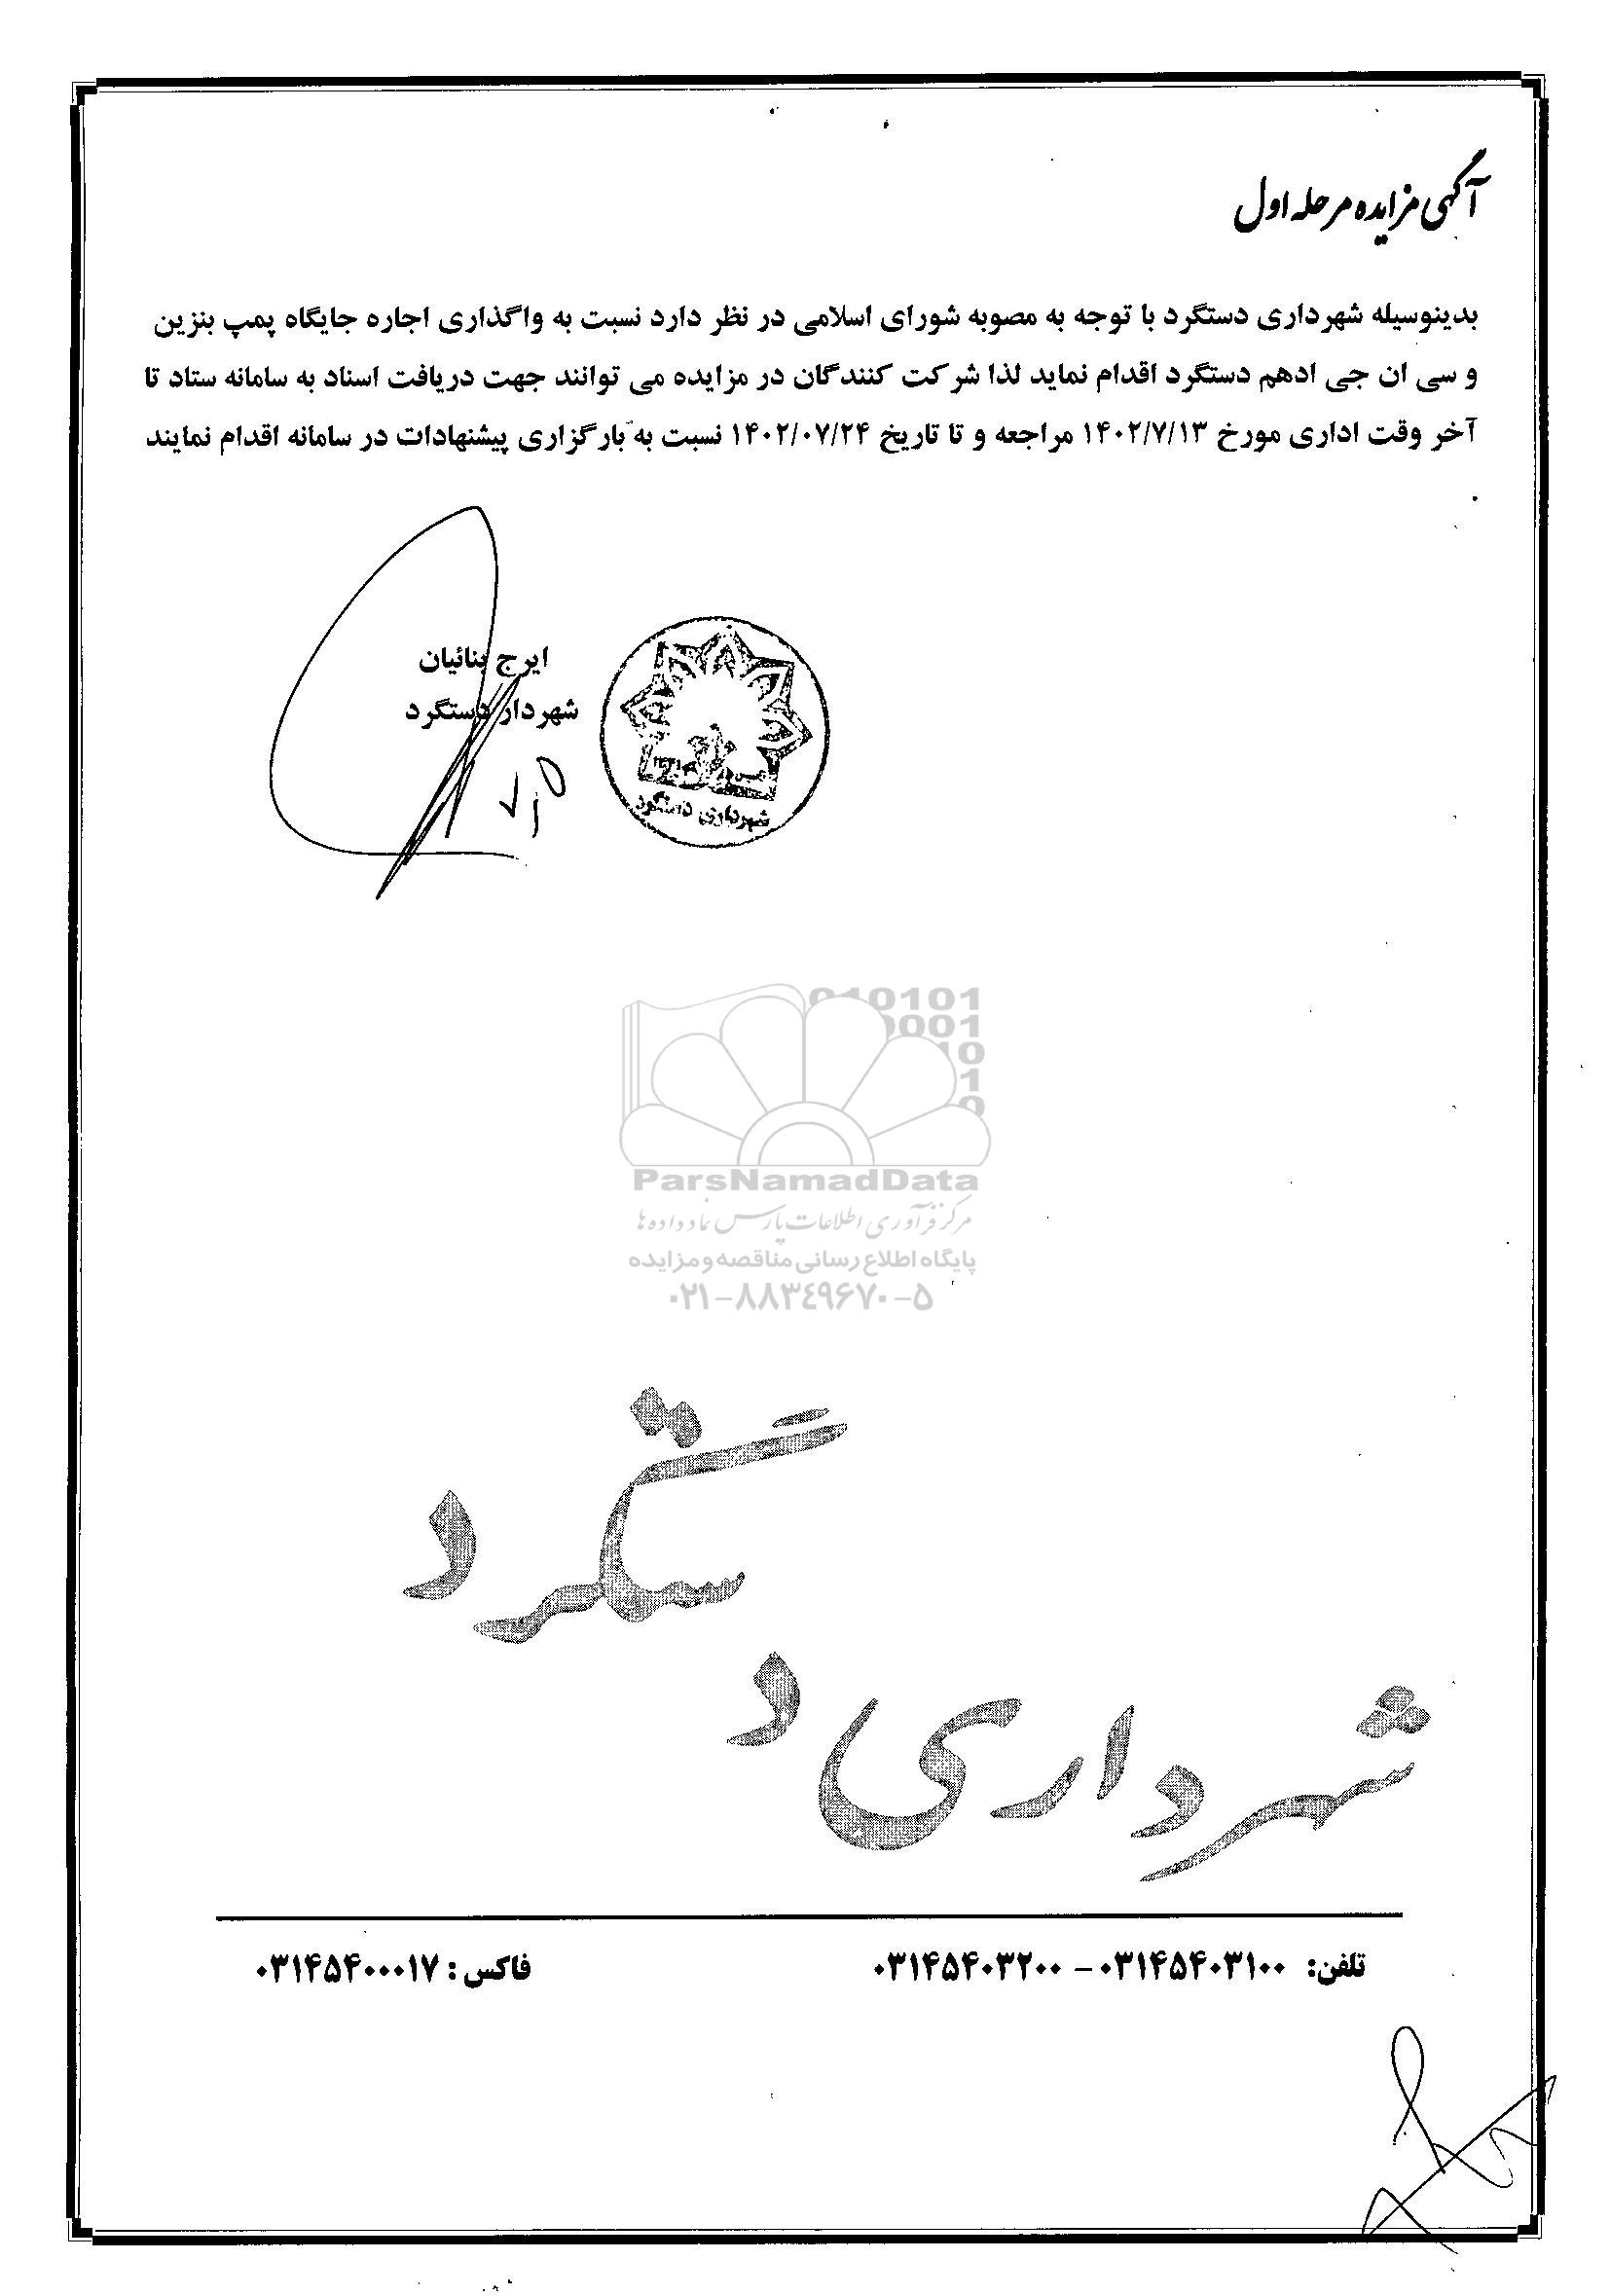 آگهی مزایده مرحله اول
بدینوسیله شهرداری دستگرد با توجه به مصوبه شورای اسلامی در نظر دارد نسبت به واگذاری اجاره جایگاه پمپ بنزین
و سی ان جی ادهم دستگرد اقدام نماید لذا شرکت کنندگان در مزایده می توانند جهت دریافت اسناد به سامانه ستاد تا
آخر وقت اداری مورخ ۱۴۰۲/۷/۱۳ مراجعه و تا تاریخ ۱۴۰۲/۰۷/۲۴ نسبت به بارگزاری پیشنهادات در سامانه اقدام نمایند
.
ایرج بنائیان
شهردار دستگرد
شهرداری دستگرد
010101
0001
10
1
0
ParsNamadData
مرکز فرآوری اطلاعات پارس نماد داده ها
پایگاه اطلاع رسانی مناقصه و مزایده
۰۲۱-۸۸۳٤۹۶۷۰-۵
شهرداری دستگرد
تلفن: ۰۳۱۴۵۴۰۳۱۰۰ - ۰۳۱۴۵۴۰۳۲۰۰
فاکس : ۰۳۱۴۵۴۰۰۰۱۷